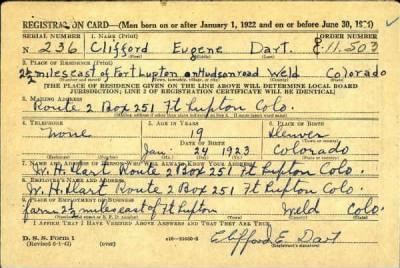 REGISTRATION CARD—(Men born on or after January 1, 1922 and on or before June 30, 1924)
SERIAL NUMBER 1. NAME (Print) ORDER NUMBER
N 236 Clifford Eugene Dart. 11,503
2. PLACE OF RESIDENCE (Print)
2½ miles east of Fort Lupton on Hudson road Weld Colorado
[THE PLACE OF RESIDENCE GIVEN ON THE LINE ABOVE WILL DETERMINE LOCAL BOARD
JURISDICTION; LINE 2 OF REGISTRATION CERTIFICATE WILL BE IDENTICAL]
3. MAILING ADDRESS
Route 2 Box 251 Ft Lupton Colo.
4. TELEPHONE 5. AGE IN YEARS 6. PLACE OF BIRTH
None 19 Denver
DATE OF BIRTH
Jan. 24 1923 Colorado
7. NAME AND ADDRESS OF PERSON WHO WILL ALWAYS KNOW YOUR ADDRESS
W. H. Dart Route 2 Box 251 Ft Lupton Colo.
8. EMPLOYER'S NAME AND ADDRESS
W. H. Dart Route 2 Box 251 Ft Lupton Colo.
9. PLACE OF EMPLOYMENT OR BUSINESS
farm 2½ miles east of Ft Lupton Weld Colo.
I AFFIRM THAT I HAVE VERIFIED ABOVE ANSWERS AND THAT THEY ARE TRUE.
D. S. S. Form 1
Clifford E. Dart